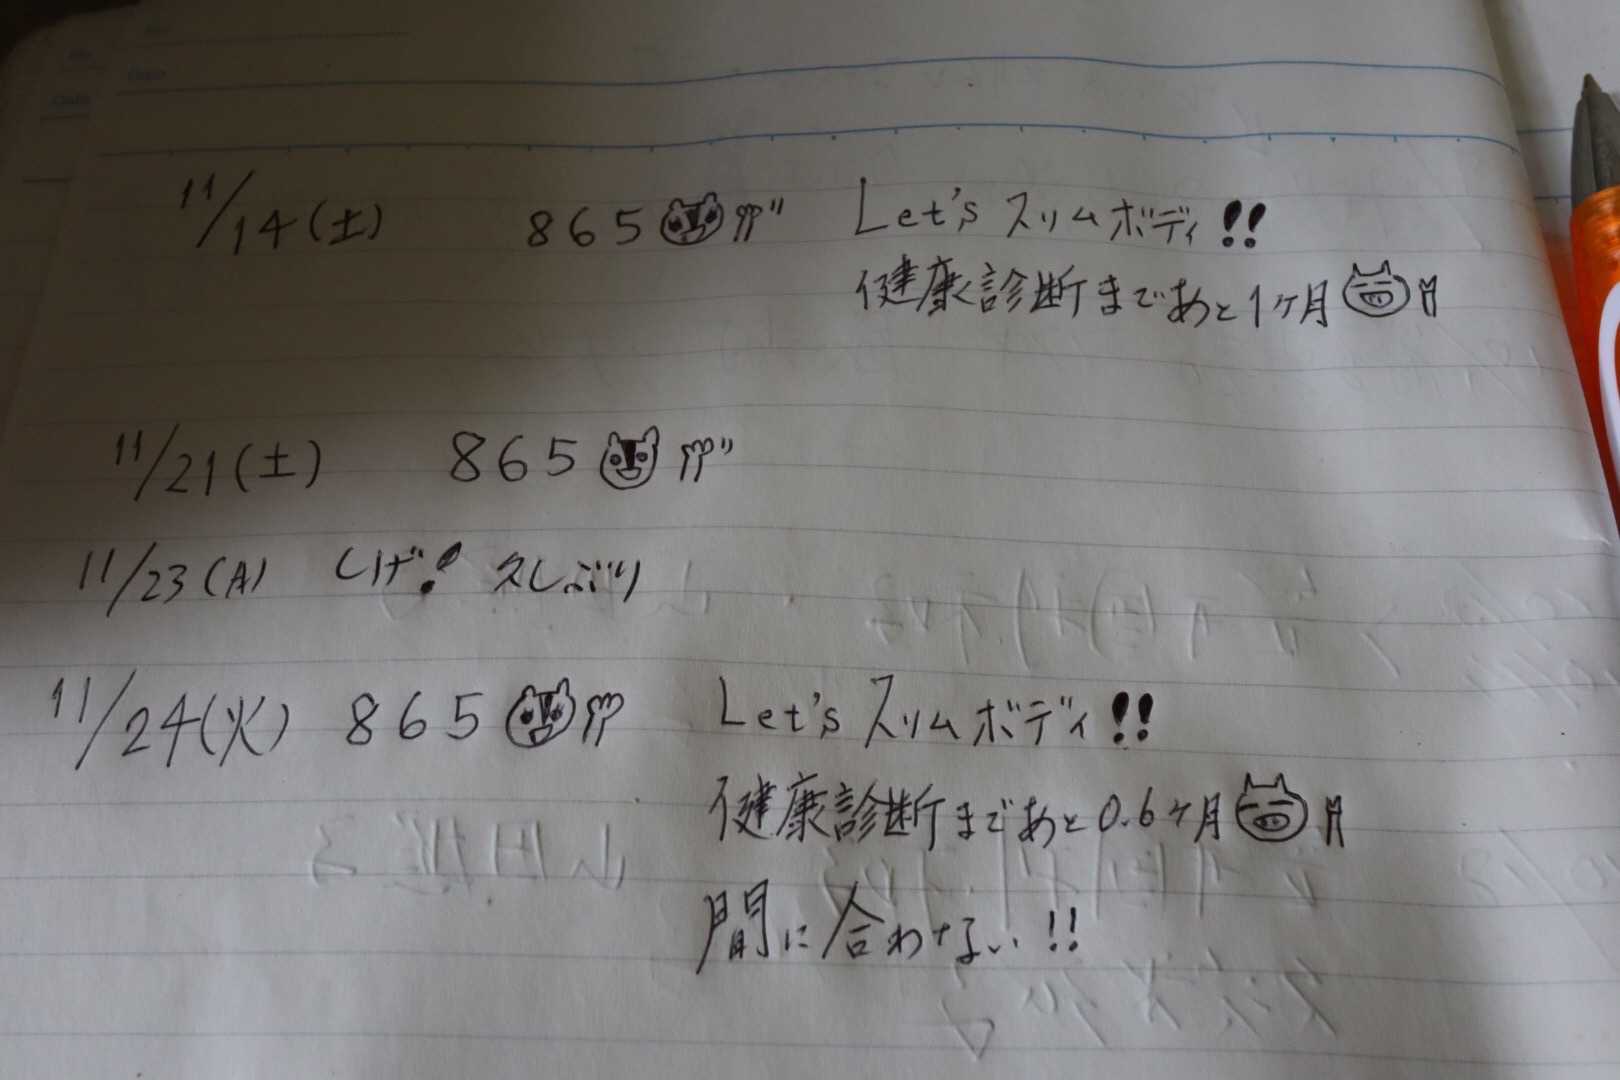 11/14(土) 865 Let's スリムボディ!!
健康診断まであと1ヶ月
11/21(土) 865
11/23(月) しげ! 久しぶり
11/24(火) 865 Let's スリムボディ!!
健康診断まであと0.6ヶ月
間に合わない!!